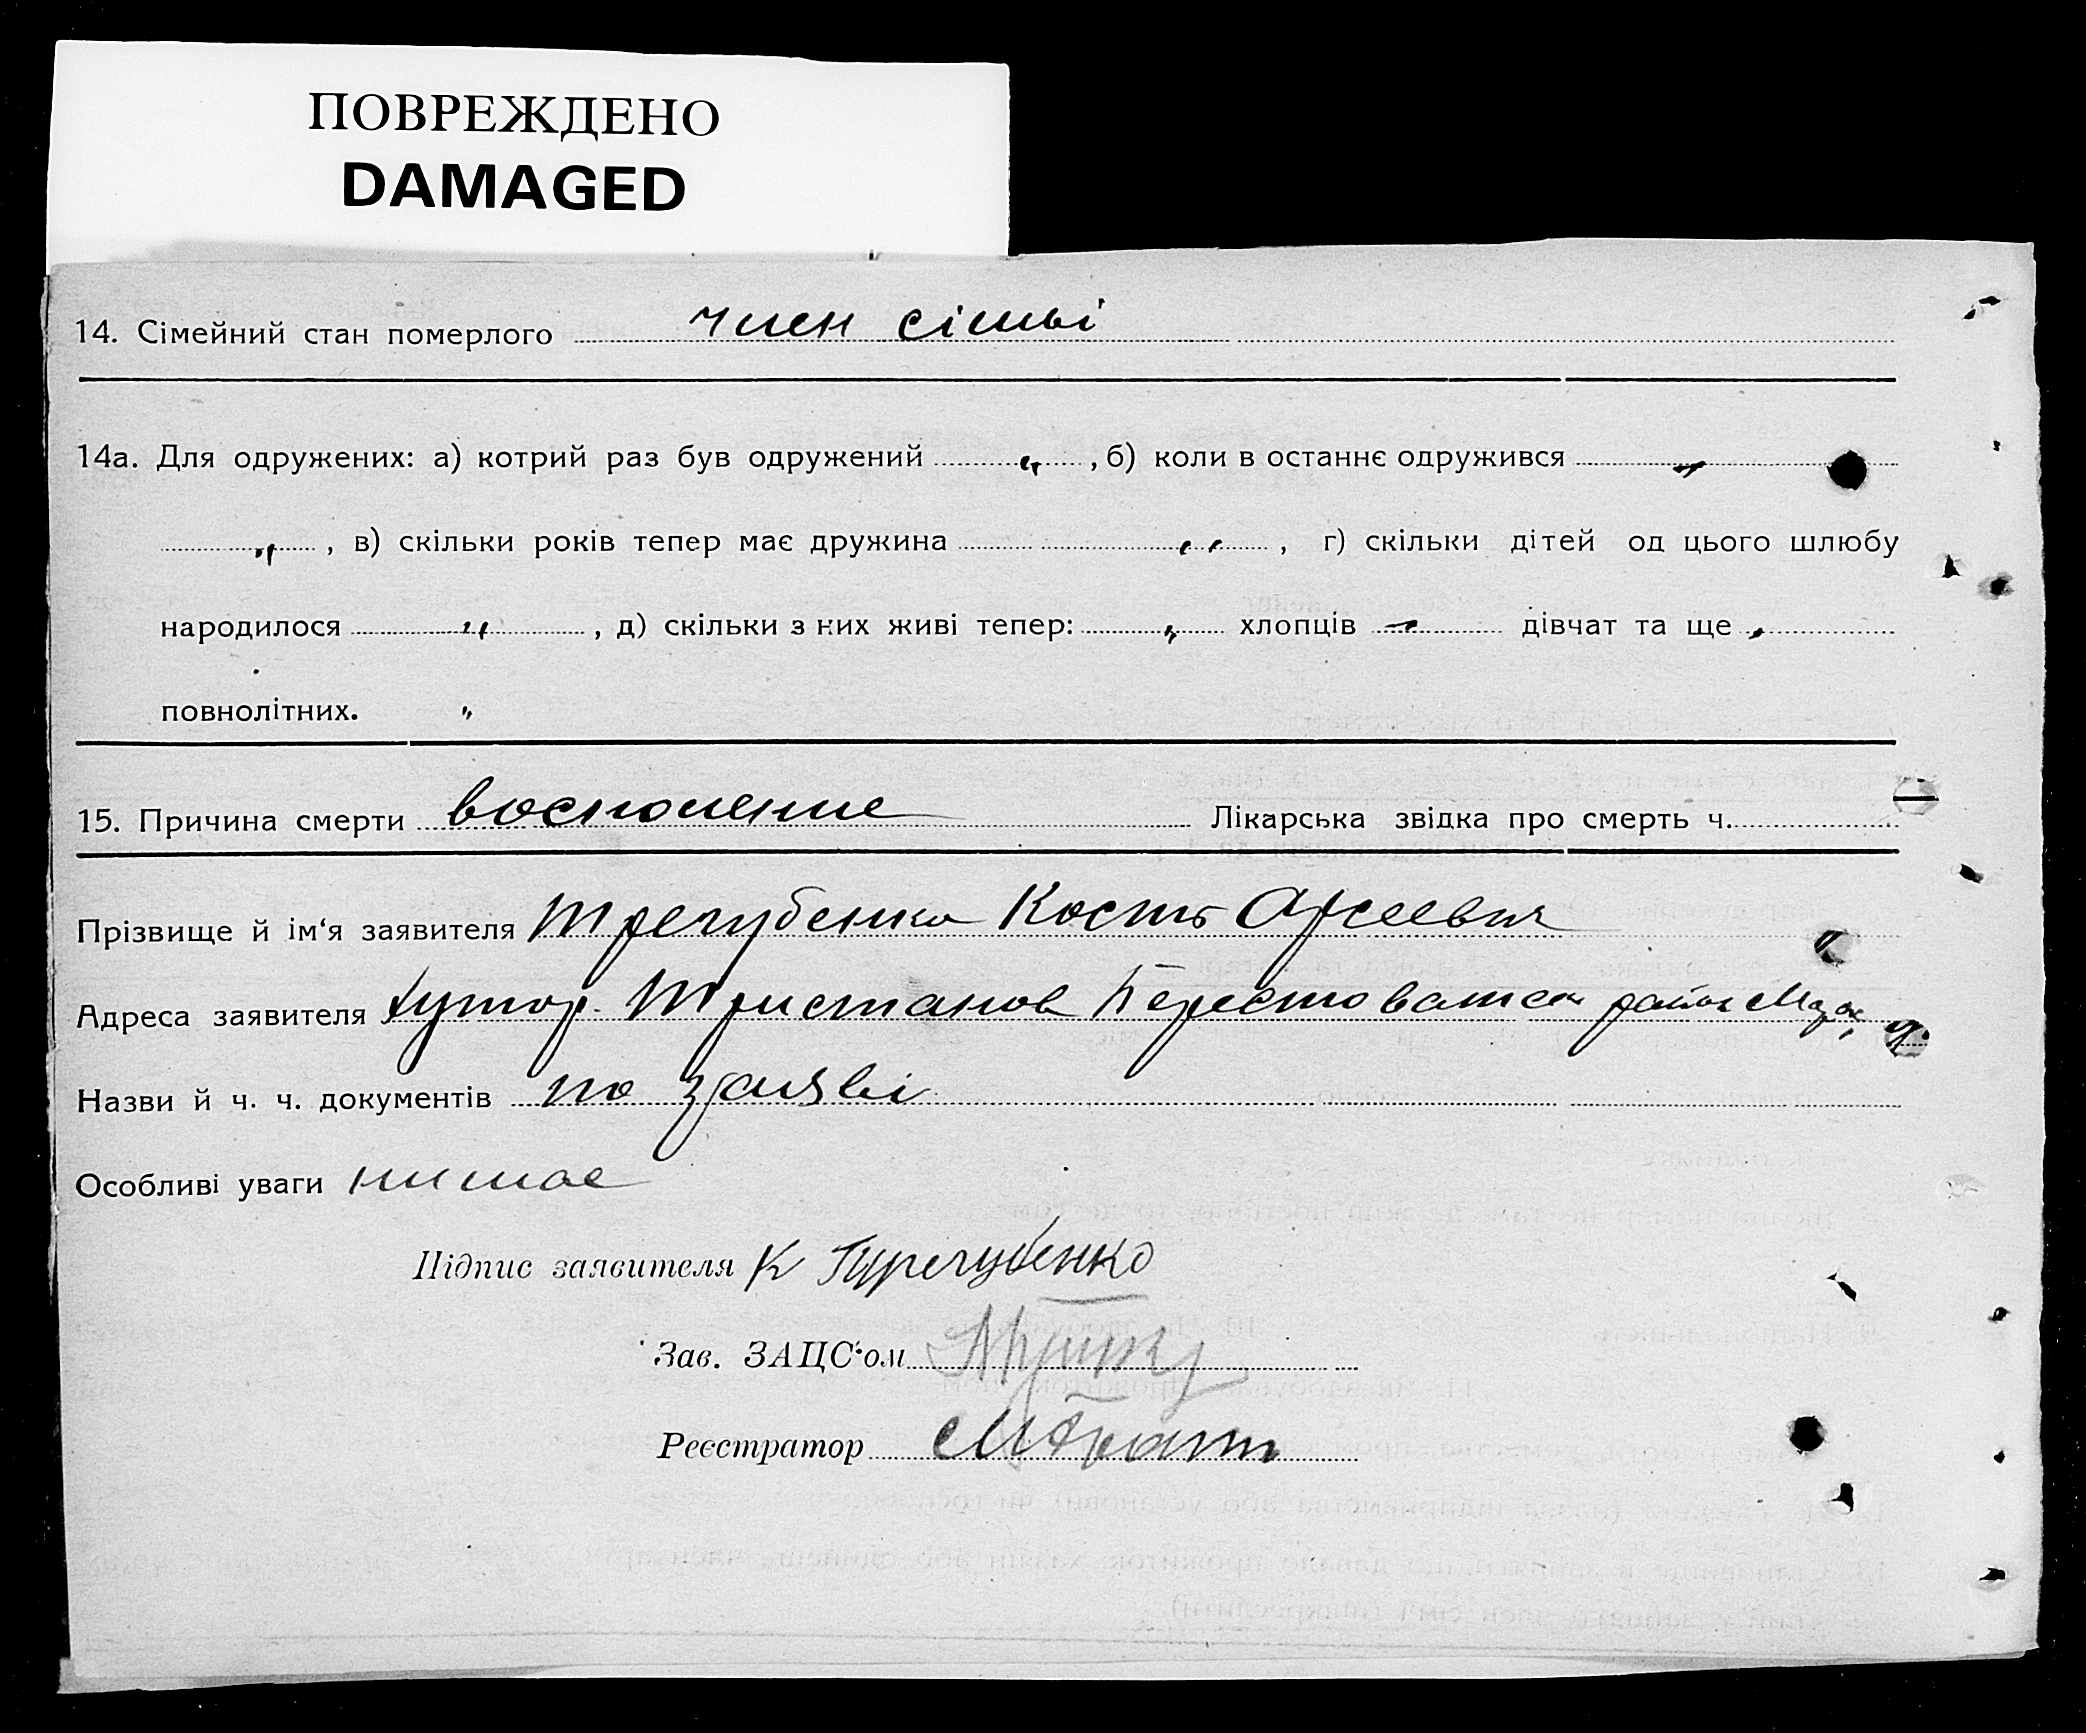 ПОВРЕЖДЕНО
DAMAGED
14. Сімейний стан померлого член сімьї
14а. Для одружених: а) котрий раз був одружений „ , б) коли в останнє одружився „
„ , в) скільки років тепер має дружина „ , г) скільки дітей од цього шлюбу
народилося „ , д) скільки з них живі тепер: „ хлопців „ дівчат та ще „
повнолітних. „
15. Причина смерти восполение Лікарська звідка про смерть ч.
Прізвище й ім‘я заявителя Трегубенко Кость
Адреса заявителя хутор Тристанов район
Назви й ч. ч. документів по заяві
Особливі уваги нимае
Підпис заявителя К Трегубенко
Зав. ЗАЦС‘ом
Реєстратор